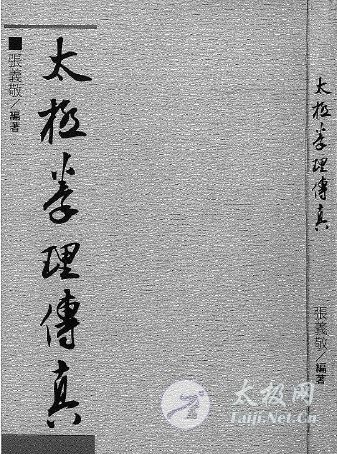 太極拳理傳真
■張義敬／編著
太極拳理傳真
張義敬／編著
太极网
Taiji.Net.Cn